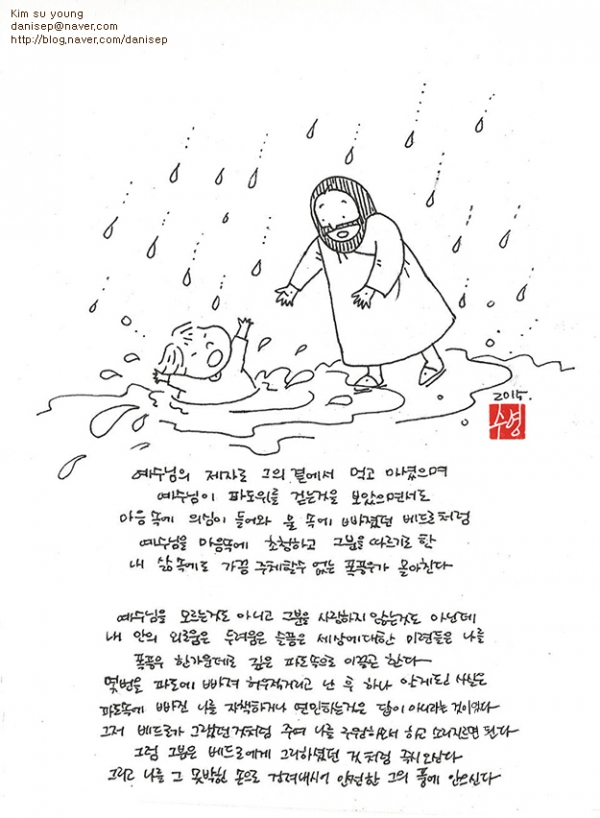 Kim su young
danisep@naver.com
http://blog.naver.com/danisep
2015.
수영
예수님의 제자로 그의 곁에서 먹고 마셨으며
예수님이 파도위를 걷는것을 보았으면서도
마음 속에 의심이 들어와 물 속에 빠졌던 베드로처럼
예수님을 마음속에 초청하고 그분을 따르기로 한
내 삶속에도 가끔 주체할수 없는 폭풍우가 몰아친다
예수님을 모르는것도 아니고 그분을 사랑하지 않는것도 아닌데
내 안의 외로움은 두려움은 슬픔은 세상에대한 미련들은 나를
폭풍우 한가운데로 깊은 파도속으로 이끌곤 한다
몇번을 파도에 빠져 허우적거리고 난 후 하나 알게된 사실은
파도속에 빠진 나를 자책하거나 연민하는것은 답이 아니라는 것이었다
그저 베드로가 그랬던것처럼 주여 나를 구원하소서 하고 소리지르면 된다
그럼 그분은 베드로에게 그리하셨던 것처럼 즉시 오신다
그리고 나를 그 못박힌 손으로 건져내시어 안전한 그의 품에 안으신다